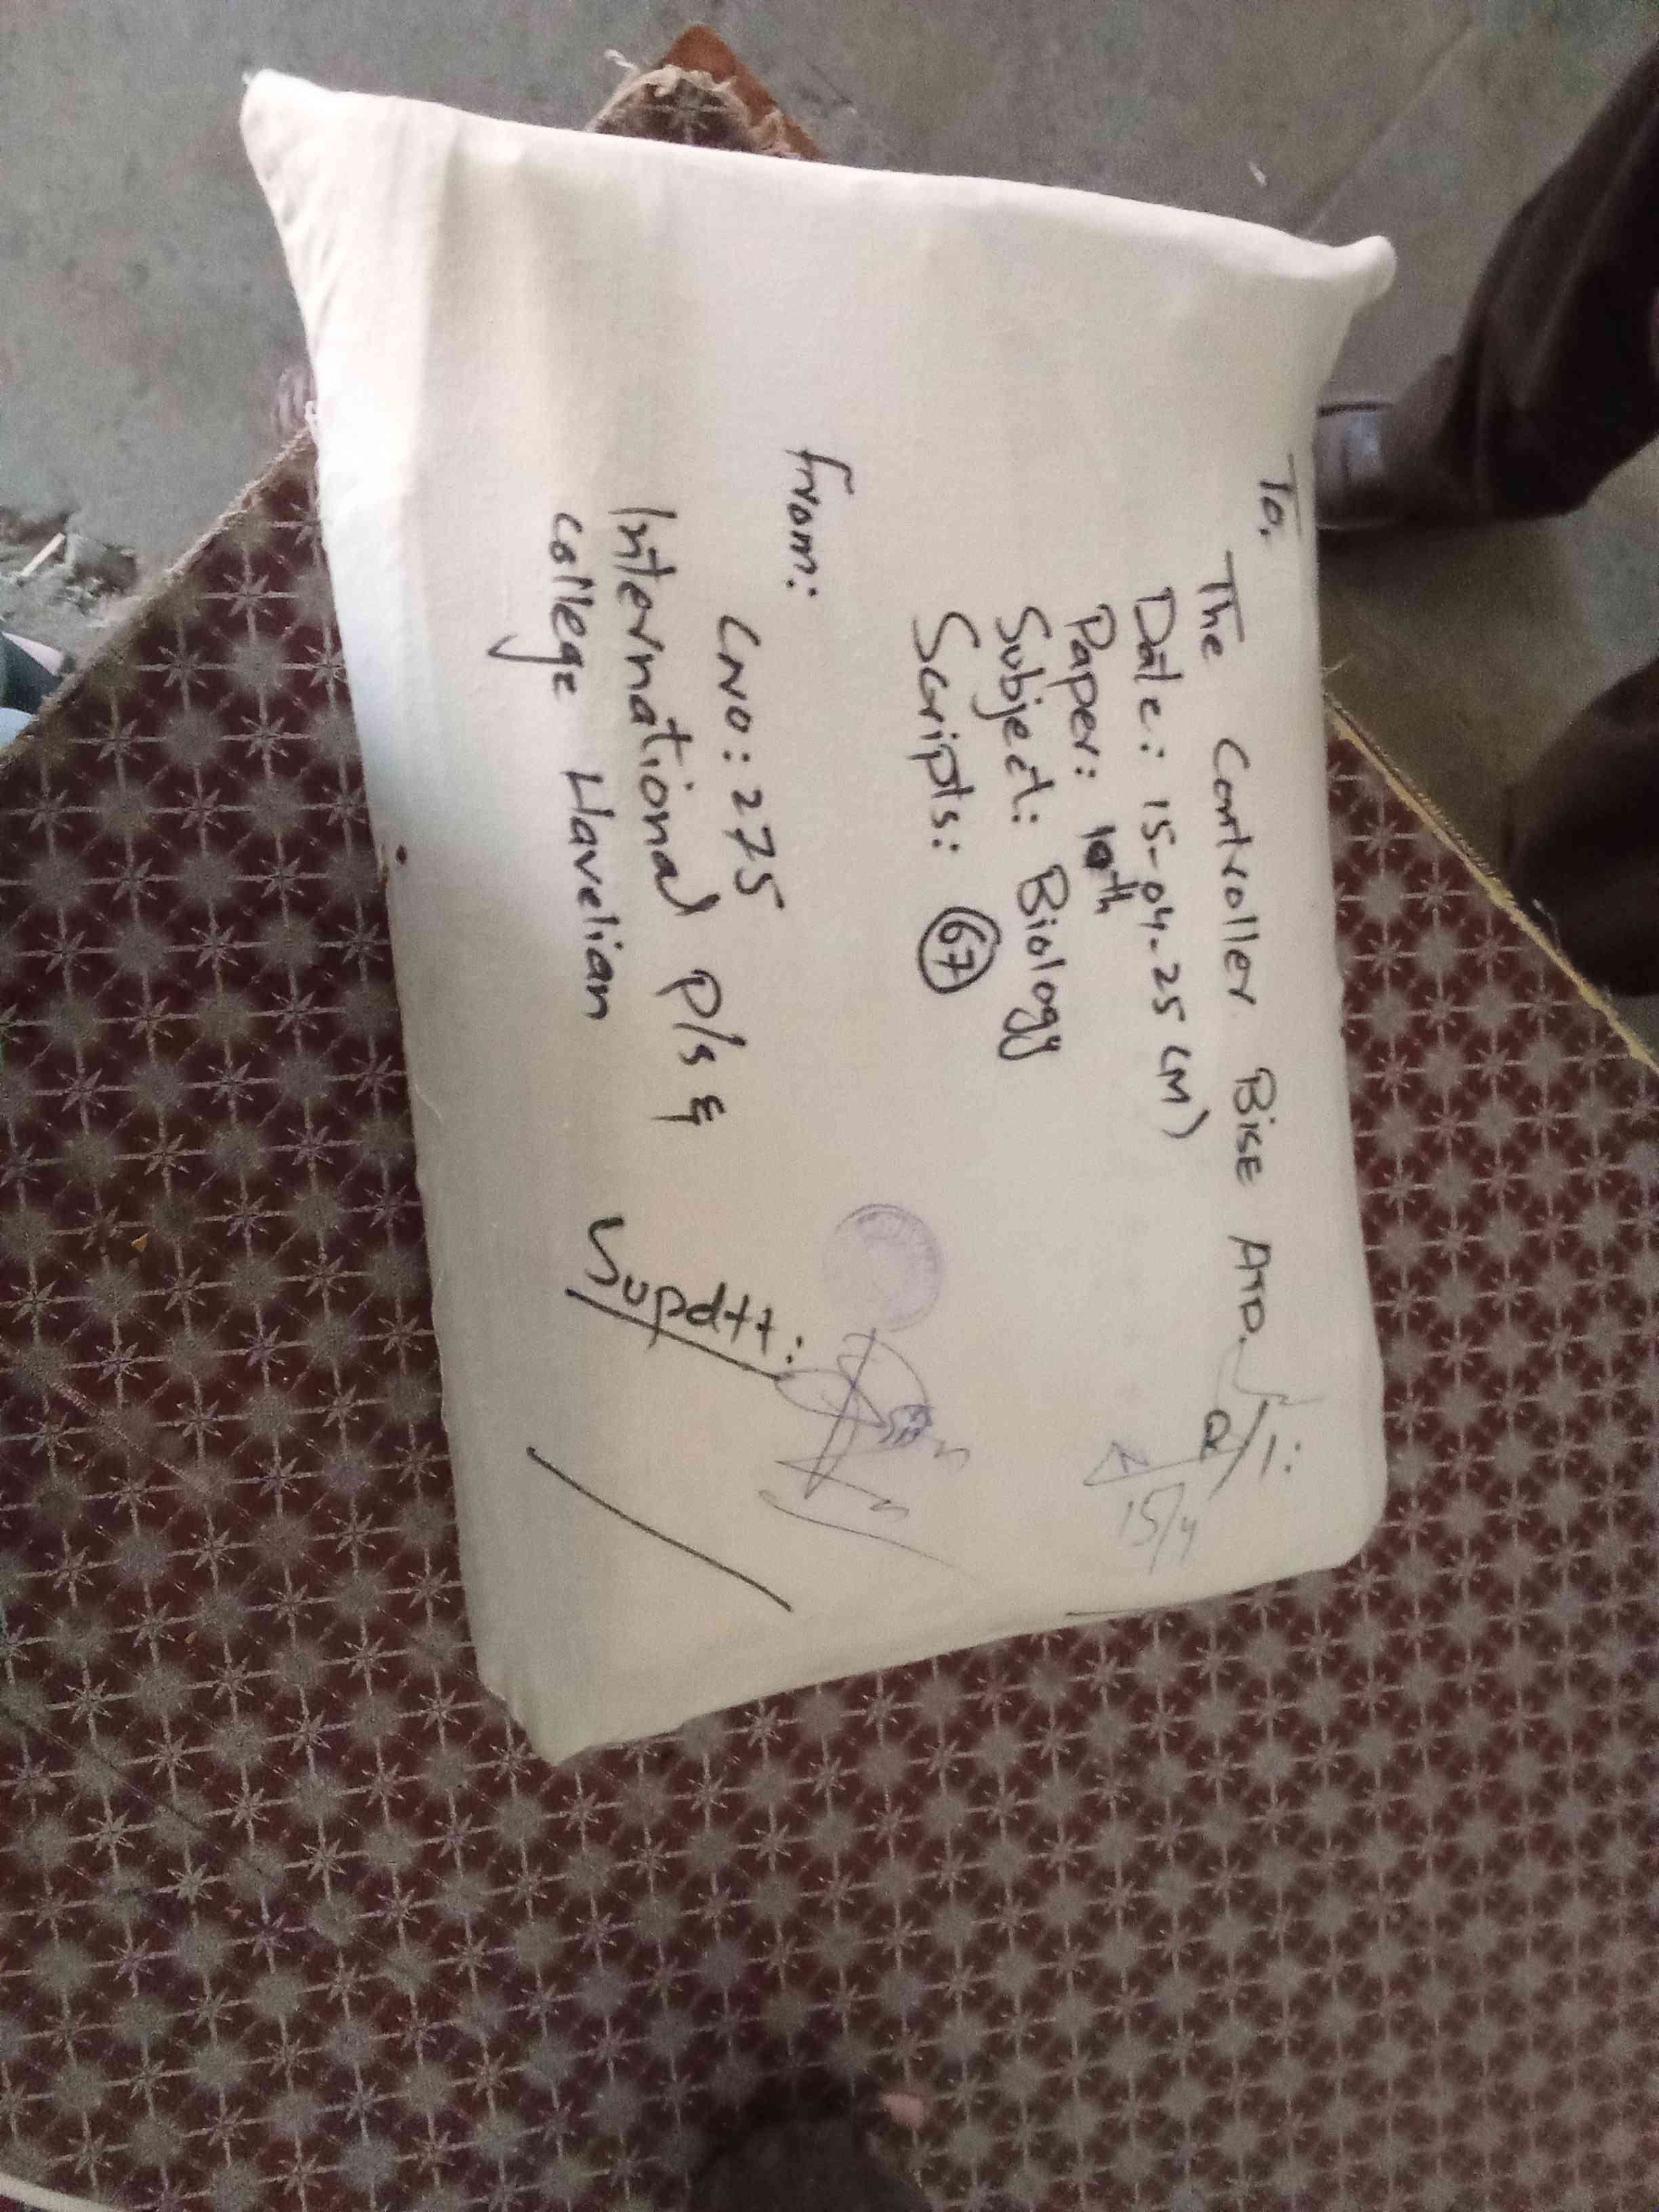 To,
The Controller BISE ATD.
Date: 15-04-25 (M)
Paper: 10th
Subject: Biology
Scripts: 67
From:
CNO: 275
International P/S &
college Havelian
Supdtt:
R/I:
15/4